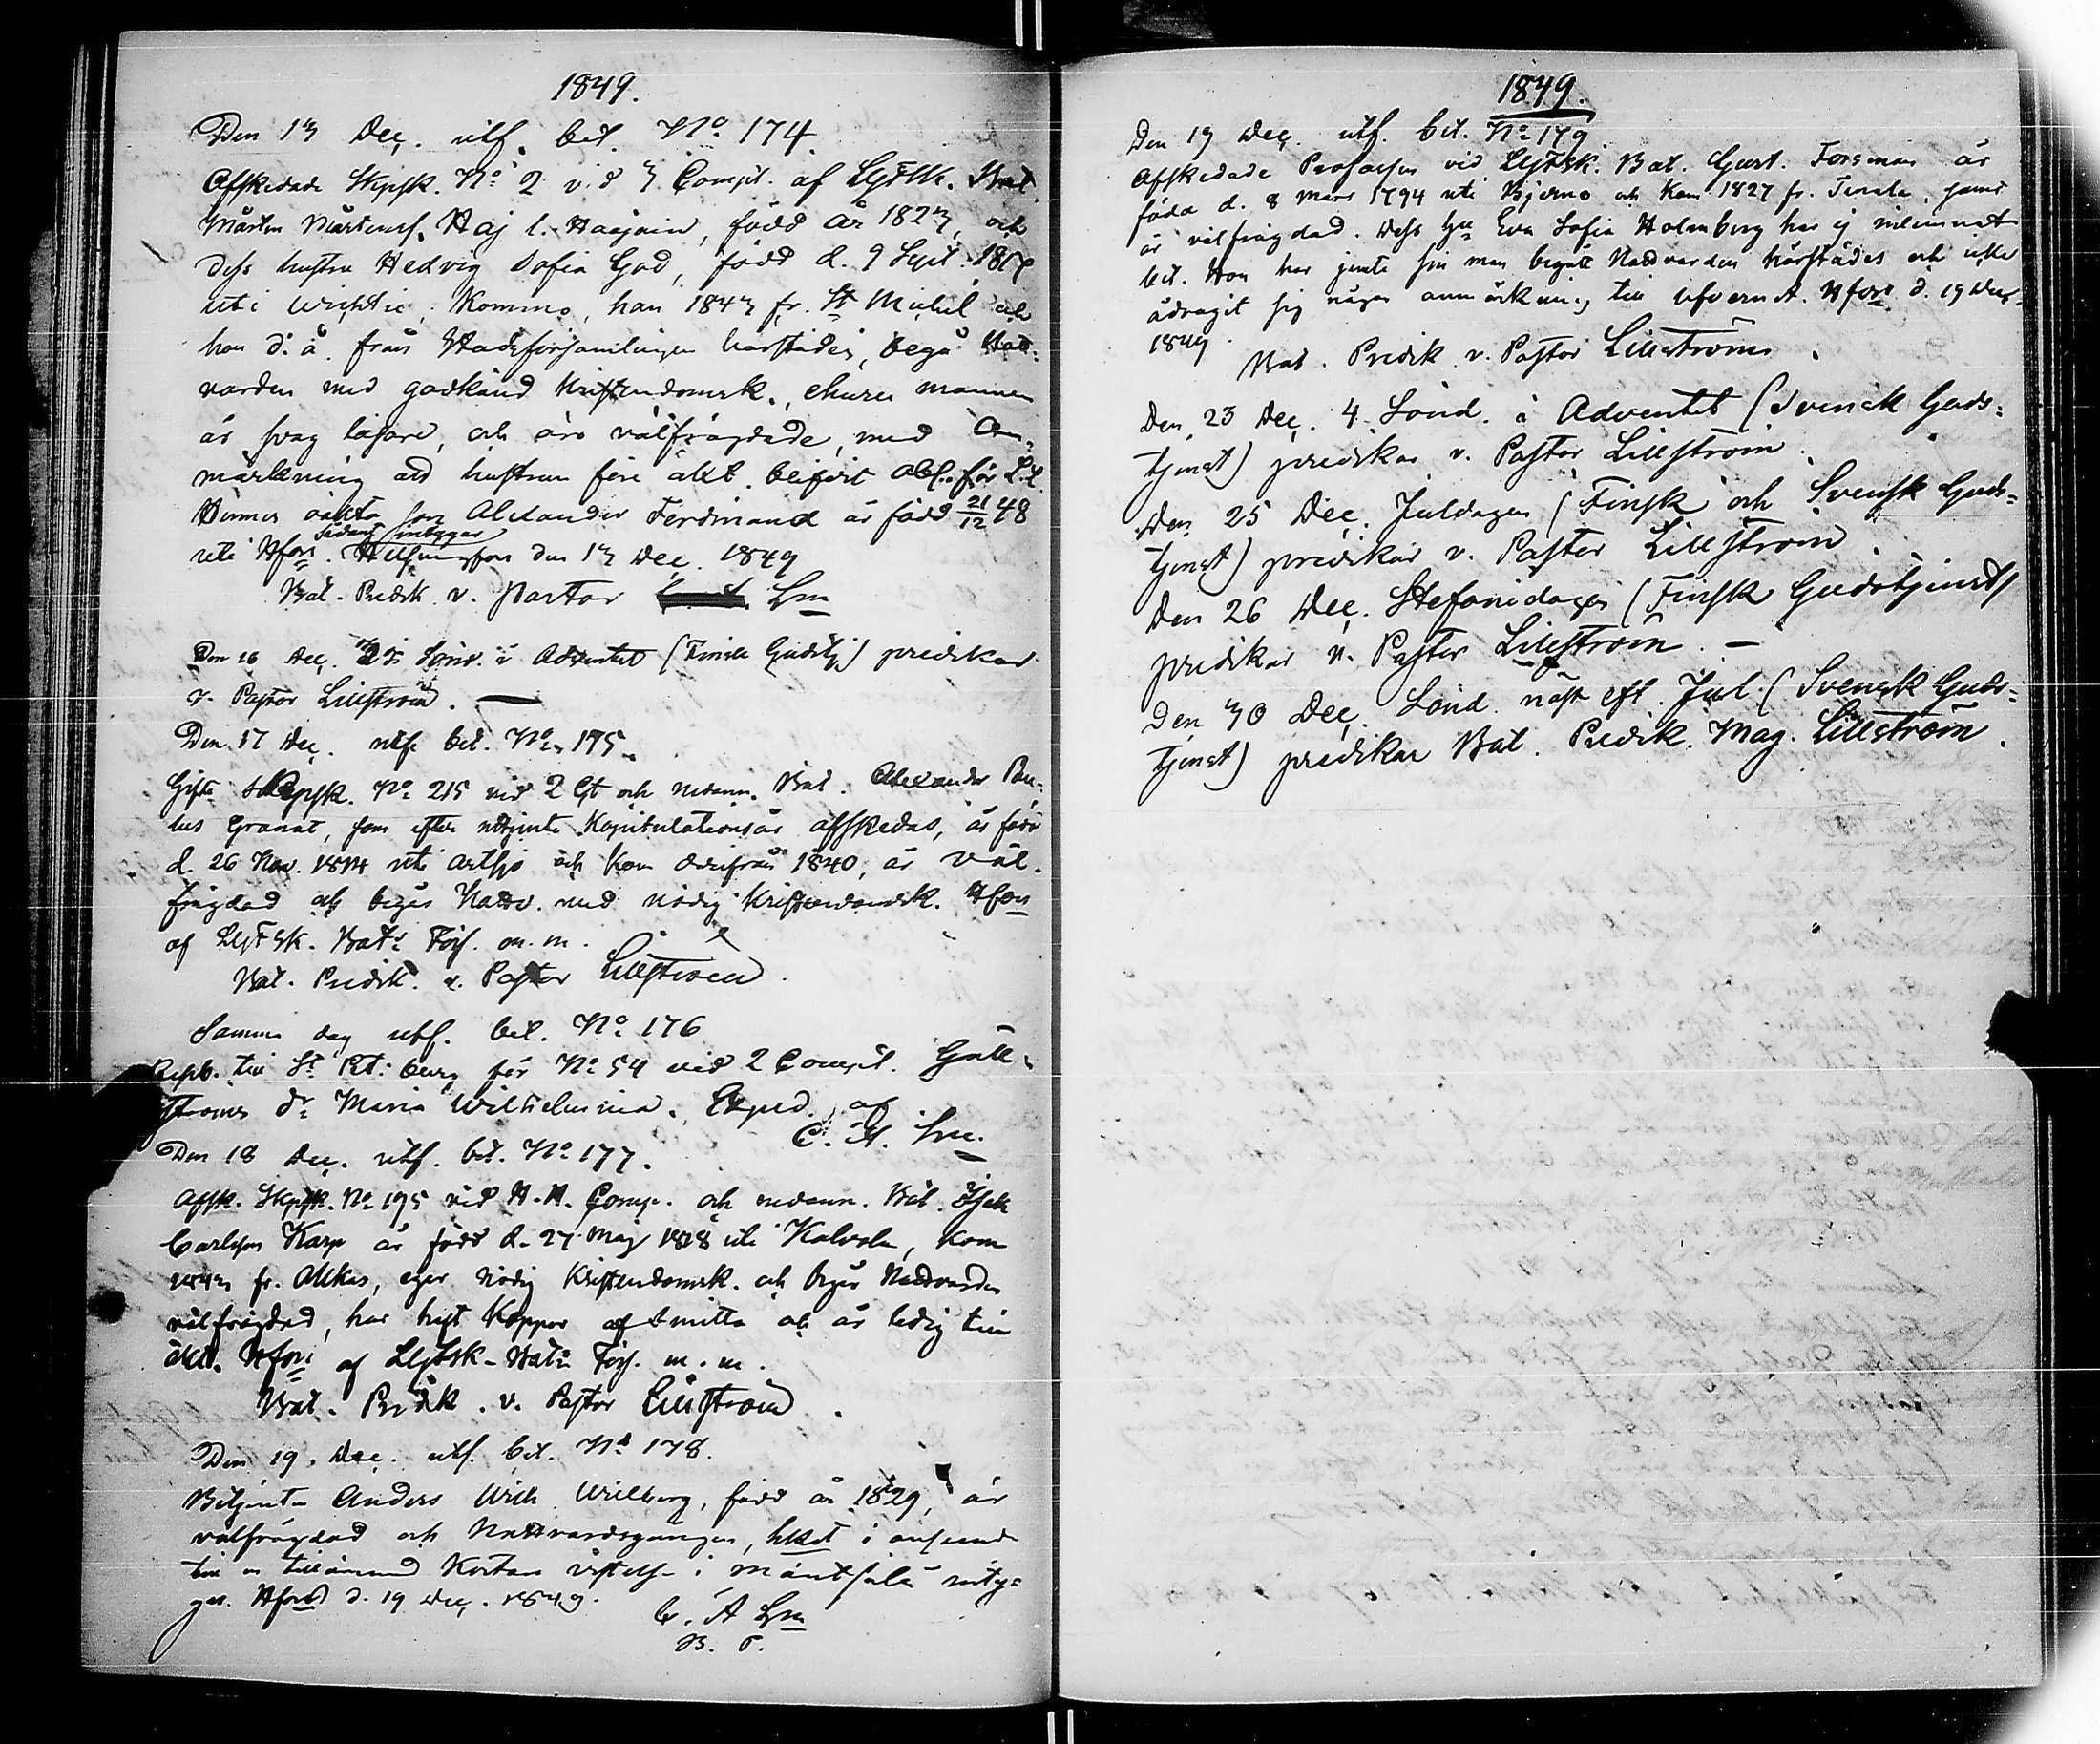 1849.
Den 13 Dec. utf. bet. No 174.
Afskedade Skpsk. No 2 vid 3 Comp. af LGFSk. Bat.
Mårten Mårtens. Haj l. Haajain, född år 1823, och
dess hustru Hedvig Sofia Gad, född d. 9 Sept.
uti Wichtis, Kommo, han 1843 fr. St Michel och
hon d. å. från Stadsförsamlingen härstädes, begå Natt-
varden med godkänd Kristendomsk., ehuru mannen
är svag läsare, och äro välfrägdade, med An-
märkning att hustrun före äkt.
oäkta son Alexander Ferdinand är född 21/12 48
uti Hfors. Helsingfors den 13 Dec. 1849
sådant intygar
Bat. Predik. v. Pastor Lm
Den 16 Dec. 3dje Sönd. i Adventet (Finsk Gudstj) predikar
v. Pastor Lillström.
Den 17 Dec. utf. bet. No 175.
Gifte Skpsk. No 215 vid 2 C. och nedann. Bat. Alexander Pau-
lus Granat, som efter uttjente Kapitulationsår afskedas, är född
d. 26 Nov. 1814 uti Artsjö och kom därifrån 1840, är väl-
frägdad och begår Nattv. med nödig Kristendomsk. Hfors
af LGFSk. Bats Förs. m. m.
Bat. Predik. v. Pastor Lillström.
Samma dag utf. bet. No 176
Repb. till St Pt:burg för No 54 vid 2 Comp. Gull-
ströms dr Maria Wilhelmina. Exped. af
C. A. Lm.
Den 18 Dec. utf. bet. No 177.
Afsk. Skpsk. No 195 vid Comp. och nedann. Bat. Isak
Carlsson Karp är född d. 27 Maj 1818 uti Kalvola, kom
1843 fr. Akkas, eger nödig Kristendomsk. och begår Nattvarden
välfrägdad, har haft Koppor af smitta och är ledig till
äkt. Hfors af LGFSk-Bats Förs. m. m.
Bat. Predik. v. Pastor Lillström.
Den 19. Dec. utf. bet. No 178.
Betjenten Anders Wilh. Willberg, född år 1829, är
välfrägdad och Nattvardsgången, hkt i anseende
till en tillämnad kortare vistelse i Mäntsälä inty-
gas. Hfors d. 19 Dec. 1849.
C. A Lm
B. P.
1849.
Den 19 Dec. utf. bet. No 179
Afskedade Profossen vid LGFSk. Bat. Gust. Forsman är
född d. 8 Mars 1794 uti Bjerno och kom 1827 fr. Tenala, samt
är välfrägdad. Dess Hu Eva Sofia Holmberg har ej inlemnat
bet. Hon har jemte sin man begått Nattvarden härstädes och icke
ådragit sig någon anmärkning till lefvernet. Hfors d. 19 Dec.
1849.
Bat. Predik v. Pastor Lillström.
Den 23 Dec. 4. Sönd. i Adventet (Svensk Guds-
tjenst) predikar v. Pastor Lillström.
Den 25 Dec. Juldagen (Finsk och Svensk Guds-
tjenst) predikar v. Pastor Lillström.
Den 26 Dec. Stefanidagen (Finsk Gudstjenst)
predikar v. Pastor Lillström. —
Den 30 Dec. Sönd. näst eft. Jul. (Svensk Guds-
tjenst) predikar Bat. Predik. Mag. Lillström.